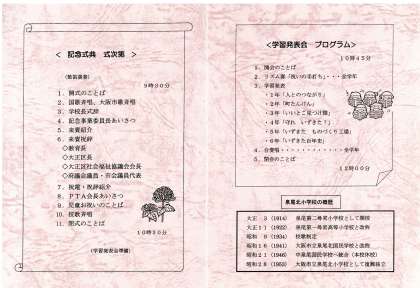 ＜ 記念式典 式次第 ＞
（敬称省略）
９時３０分
１．開式のことば
２．国歌斉唱、大阪市歌斉唱
３．学校長式辞
４．記念事業委員長あいさつ
５．来賓紹介
６．来賓祝辞
◇教育長
◇大正区長
◇大正区社会福祉協議会会長
◇府議会議員・市会議員代表
７．祝電・祝詞紹介
８．ＰＴＡ会長あいさつ
９．児童お祝いのことば
１０．校歌斉唱
１１．閉式のことば
１０時３０分
（学習発表会準備）
＜学習発表会 プログラム＞
１０時４５分
１．開会のことば
２．リズム隊「祝いの手打ち」・・・全学年
３．学習発表
・１年「人とのつながり」
・２年「町たんけん」
・３年「いいとこ見つけ隊」
・４年「守れ いずきた！」
・５年「いずきた ものづくり工場」
・６年「いずきた百年史」
４．合奏唱・・・・・・・・・・・全学年
５．閉会のことば
１２時００分
泉尾北小学校の概歴
大正 ３（1914） 泉尾第二尋常小学校として開校
大正１１（1922） 泉尾第一尋常高等小学校と改称
昭和 ９（1934） 校歌制定
昭和１６（1941） 大阪市立泉尾北国民学校と改称
昭和２１（1946） 中泉尾国民学校へ統合（本校休校）
昭和２８（1953） 大阪市立泉尾北小学校として復興独立